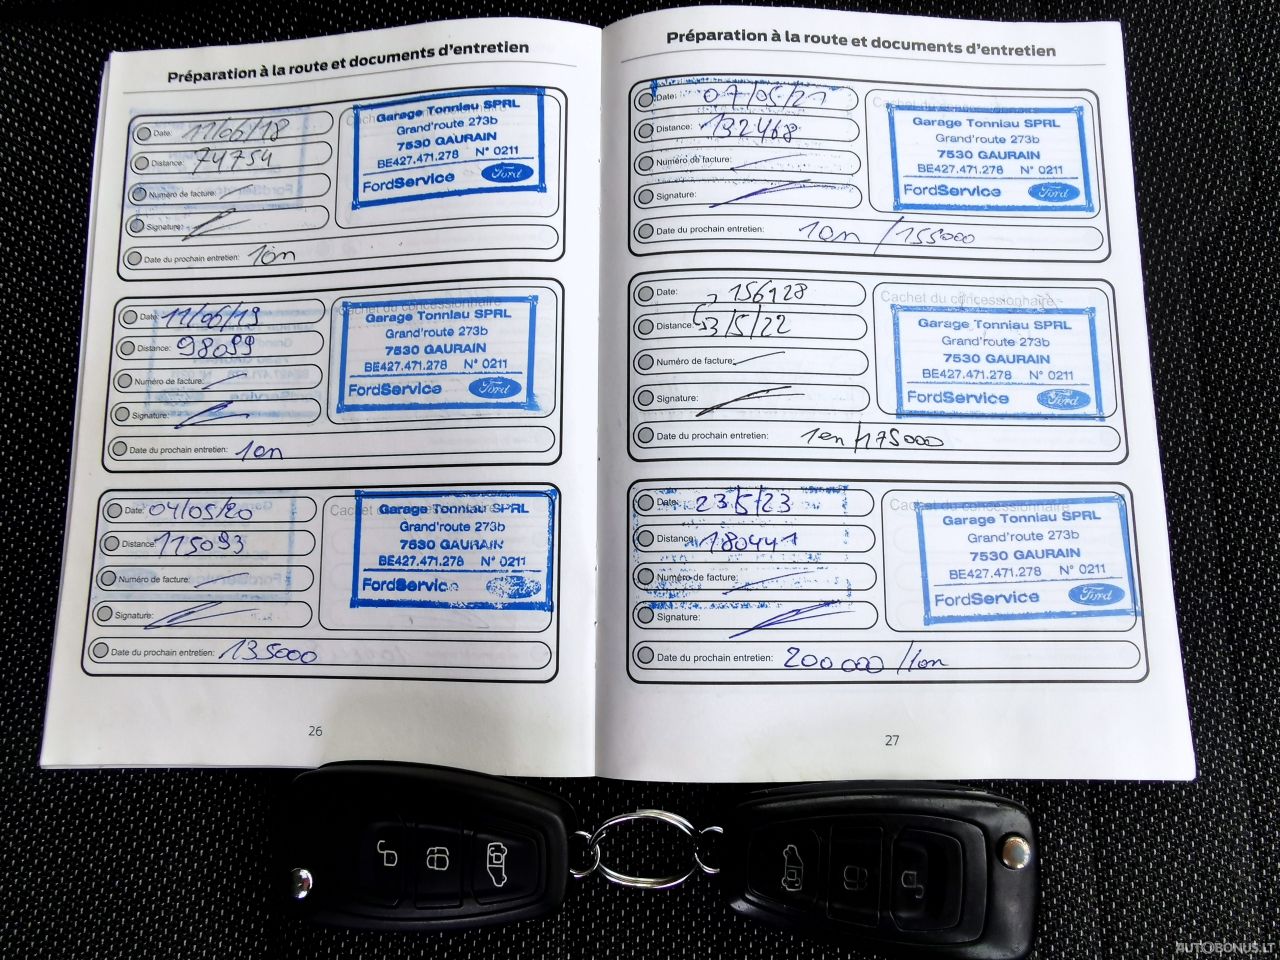 Préparation à la route et documents d'entretien
Date: 11/06/18
Distance: 74754
Numéro de facture:
Signature:
Date du prochain entretien: 1an
Garage Tonniau SPRL
Grand'route 273b
7530 GAURAIN
BE427.471.278 N° 0211
FordService Ford
Date: 11/06/19
Distance: 98099
Numéro de facture:
Signature:
Date du prochain entretien: 1an
Cachet du concessionnaire
Garage Tonniau SPRL
Grand'route 273b
7530 GAURAIN
BE427.471.278 N° 0211
FordService Ford
Date: 04/05/20
Distance: 115093
Numéro de facture:
Signature:
Date du prochain entretien: 135000
Cachet du concessionnaire
Garage Tonniau SPRL
Grand'route 273b
7530 GAURAIN
BE427.471.278 N° 0211
FordService Ford
26
Préparation à la route et documents d'entretien
Date: 07/05/21
Distance: 132468
Numéro de facture:
Signature:
Date du prochain entretien: 1an /155000
Cachet du concessionnaire
Garage Tonniau SPRL
Grand'route 273b
7530 GAURAIN
BE427.471.278 N° 0211
FordService Ford
Date: 156128
Distance: 3/5/22
Numéro de facture:
Signature:
Date du prochain entretien: 1an/175000
Cachet du concessionnaire
Garage Tonniau SPRL
Grand'route 273b
7530 GAURAIN
BE427.471.278 N° 0211
FordService Ford
Date: 23/5/23
Distance: 180441
Numéro de facture:
Signature:
Date du prochain entretien: 200000 /1an
Cachet du concessionnaire
Garage Tonniau SPRL
Grand'route 273b
7530 GAURAIN
BE427.471.278 N° 0211
FordService Ford
27
AUTOBONUS.LT